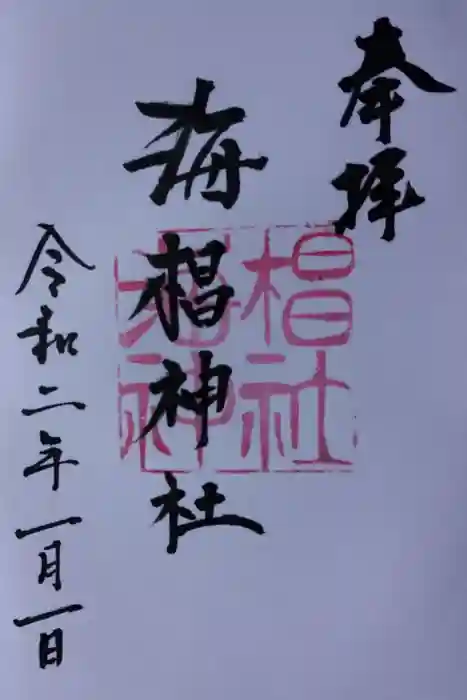 奉拝
海椙神社
令和二年一月一日
海椙
神社